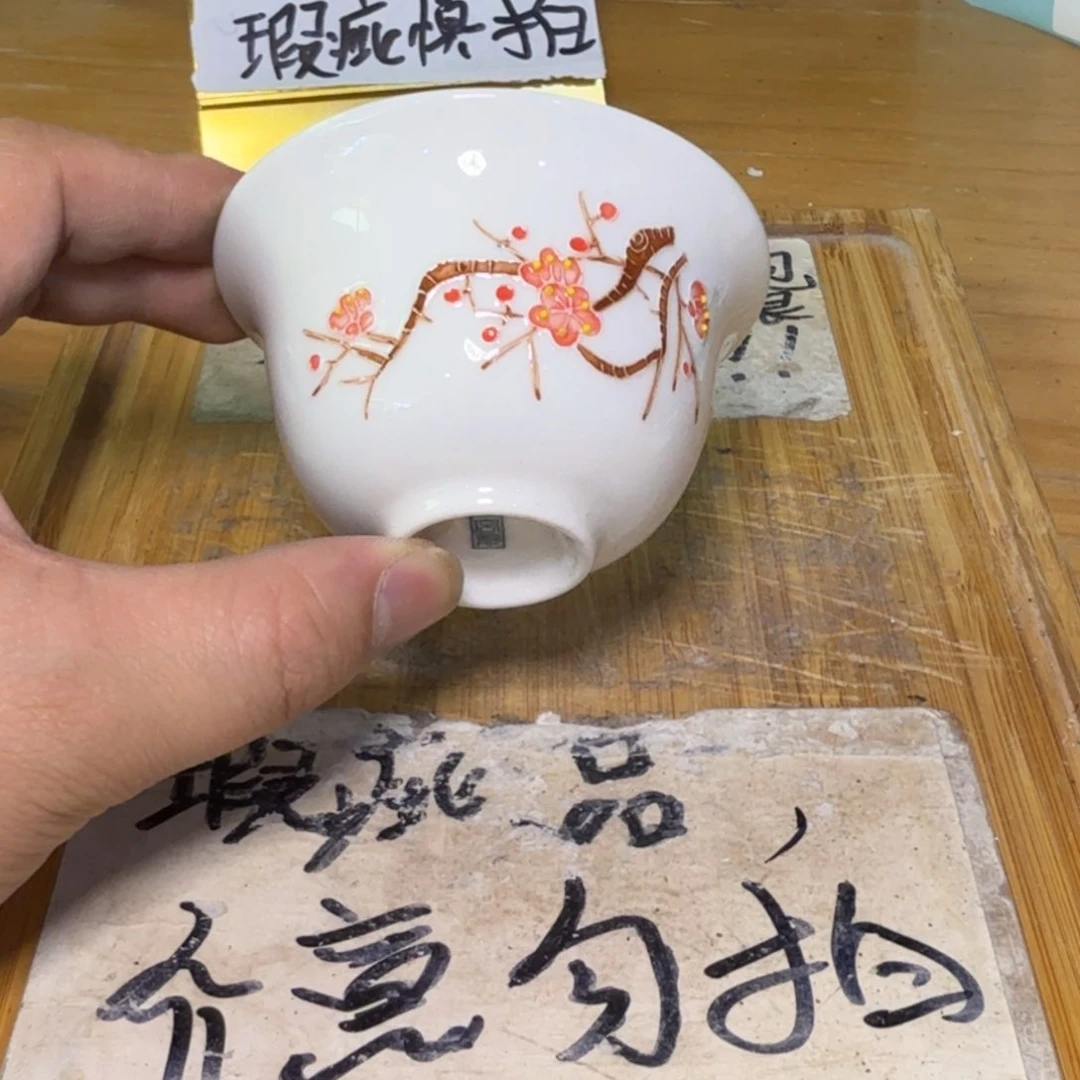 瑕疵慎拍
瑕疵品，
介意勿拍